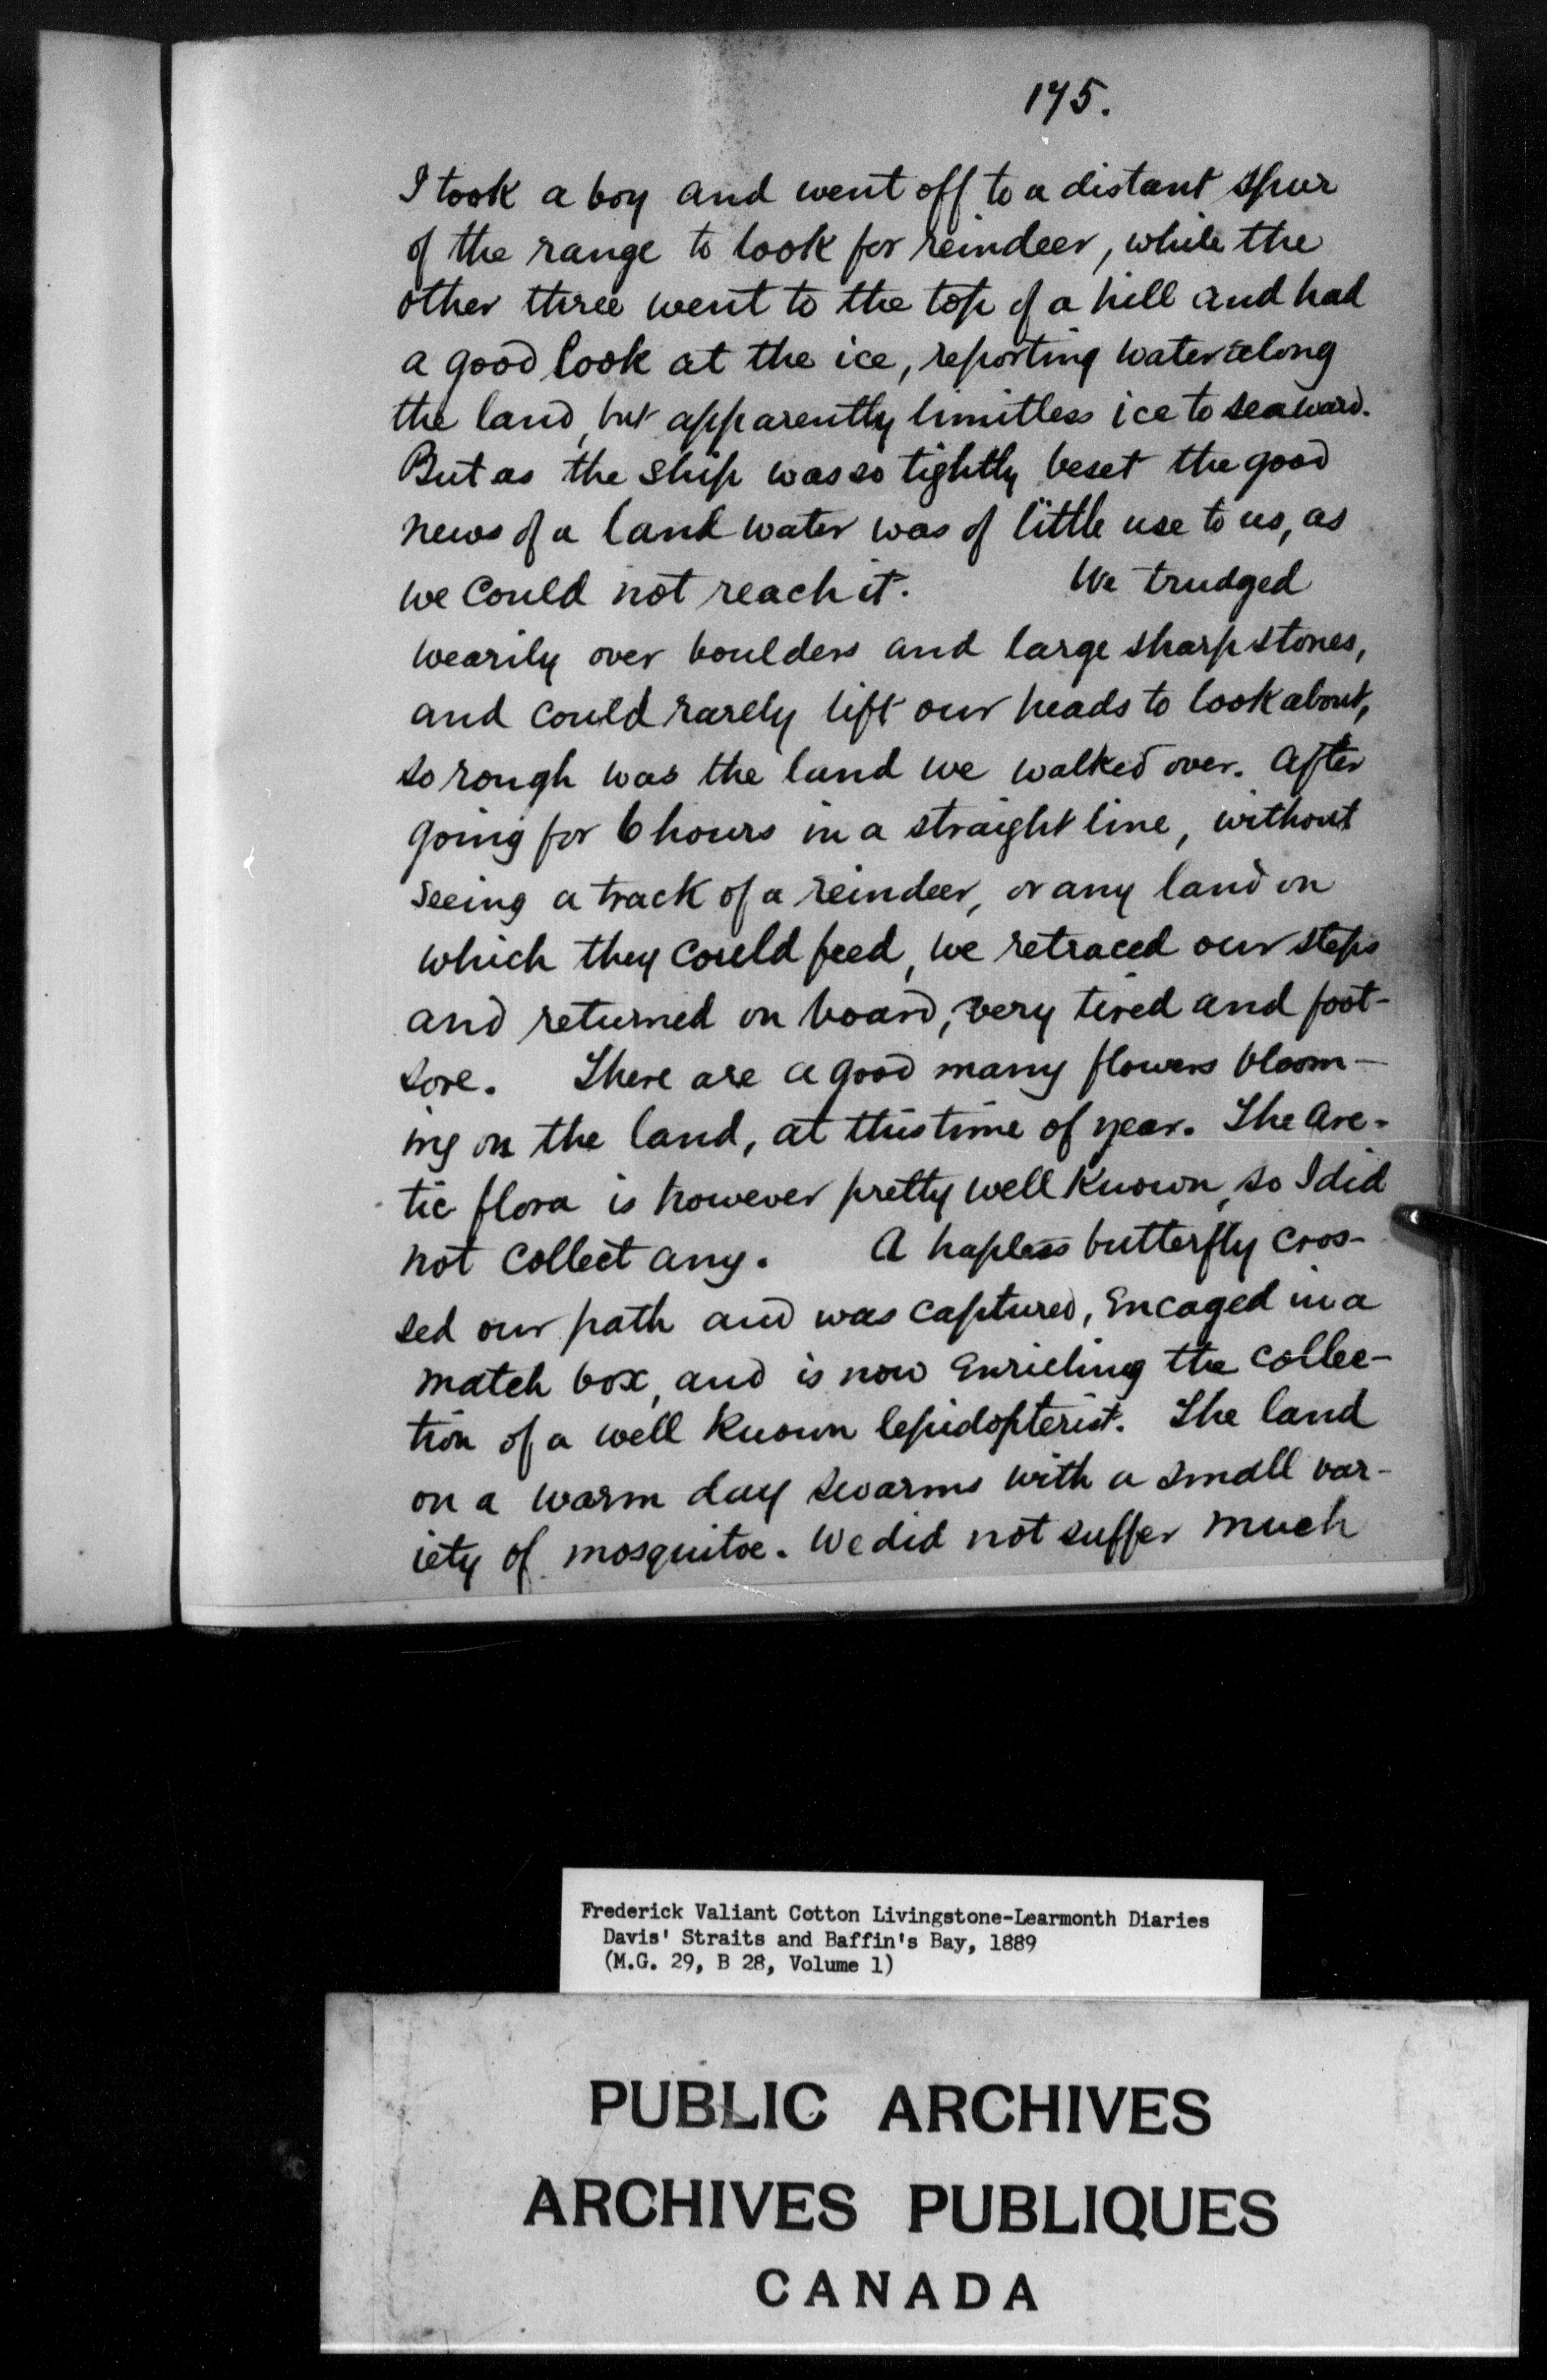 175.
I took a boy and went off to a distant spur
of the range to look for reindeer, while the
other three went to the top of a hill and had
a good look at the ice, reporting water along
the land, but apparently limitless ice to seaward.
But as the ship was so tightly beset the good
news of a land water was of little use to us, as
we could not reach it. We trudged
wearily over boulders and large sharp stones,
and could rarely lift our heads to look about,
so rough was the land we walked over. After
going for 6 hours in a straight line, without
seeing a track of a reindeer, or any land on
which they could feed, we retraced our steps
and returned on board, very tired and foot-
sore. There are a good many flowers bloom-
ing on the land, at this time of year. The Arc-
tic flora is however pretty well known, so I did
not collect any. A hapless butterfly cros-
sed our path and was captured, encaged in a
match box, and is now enriching the collec-
tion of a well known lepidopterist. The land
on a warm day swarms with a small var-
iety of mosquitoe. We did not suffer much
Frederick Valiant Cotton Livingstone-Learmonth Diaries
Davis' Straits and Baffin's Bay, 1889
(M.G. 29, B 28, Volume 1)
PUBLIC ARCHIVES
ARCHIVES PUBLIQUES
CANADA